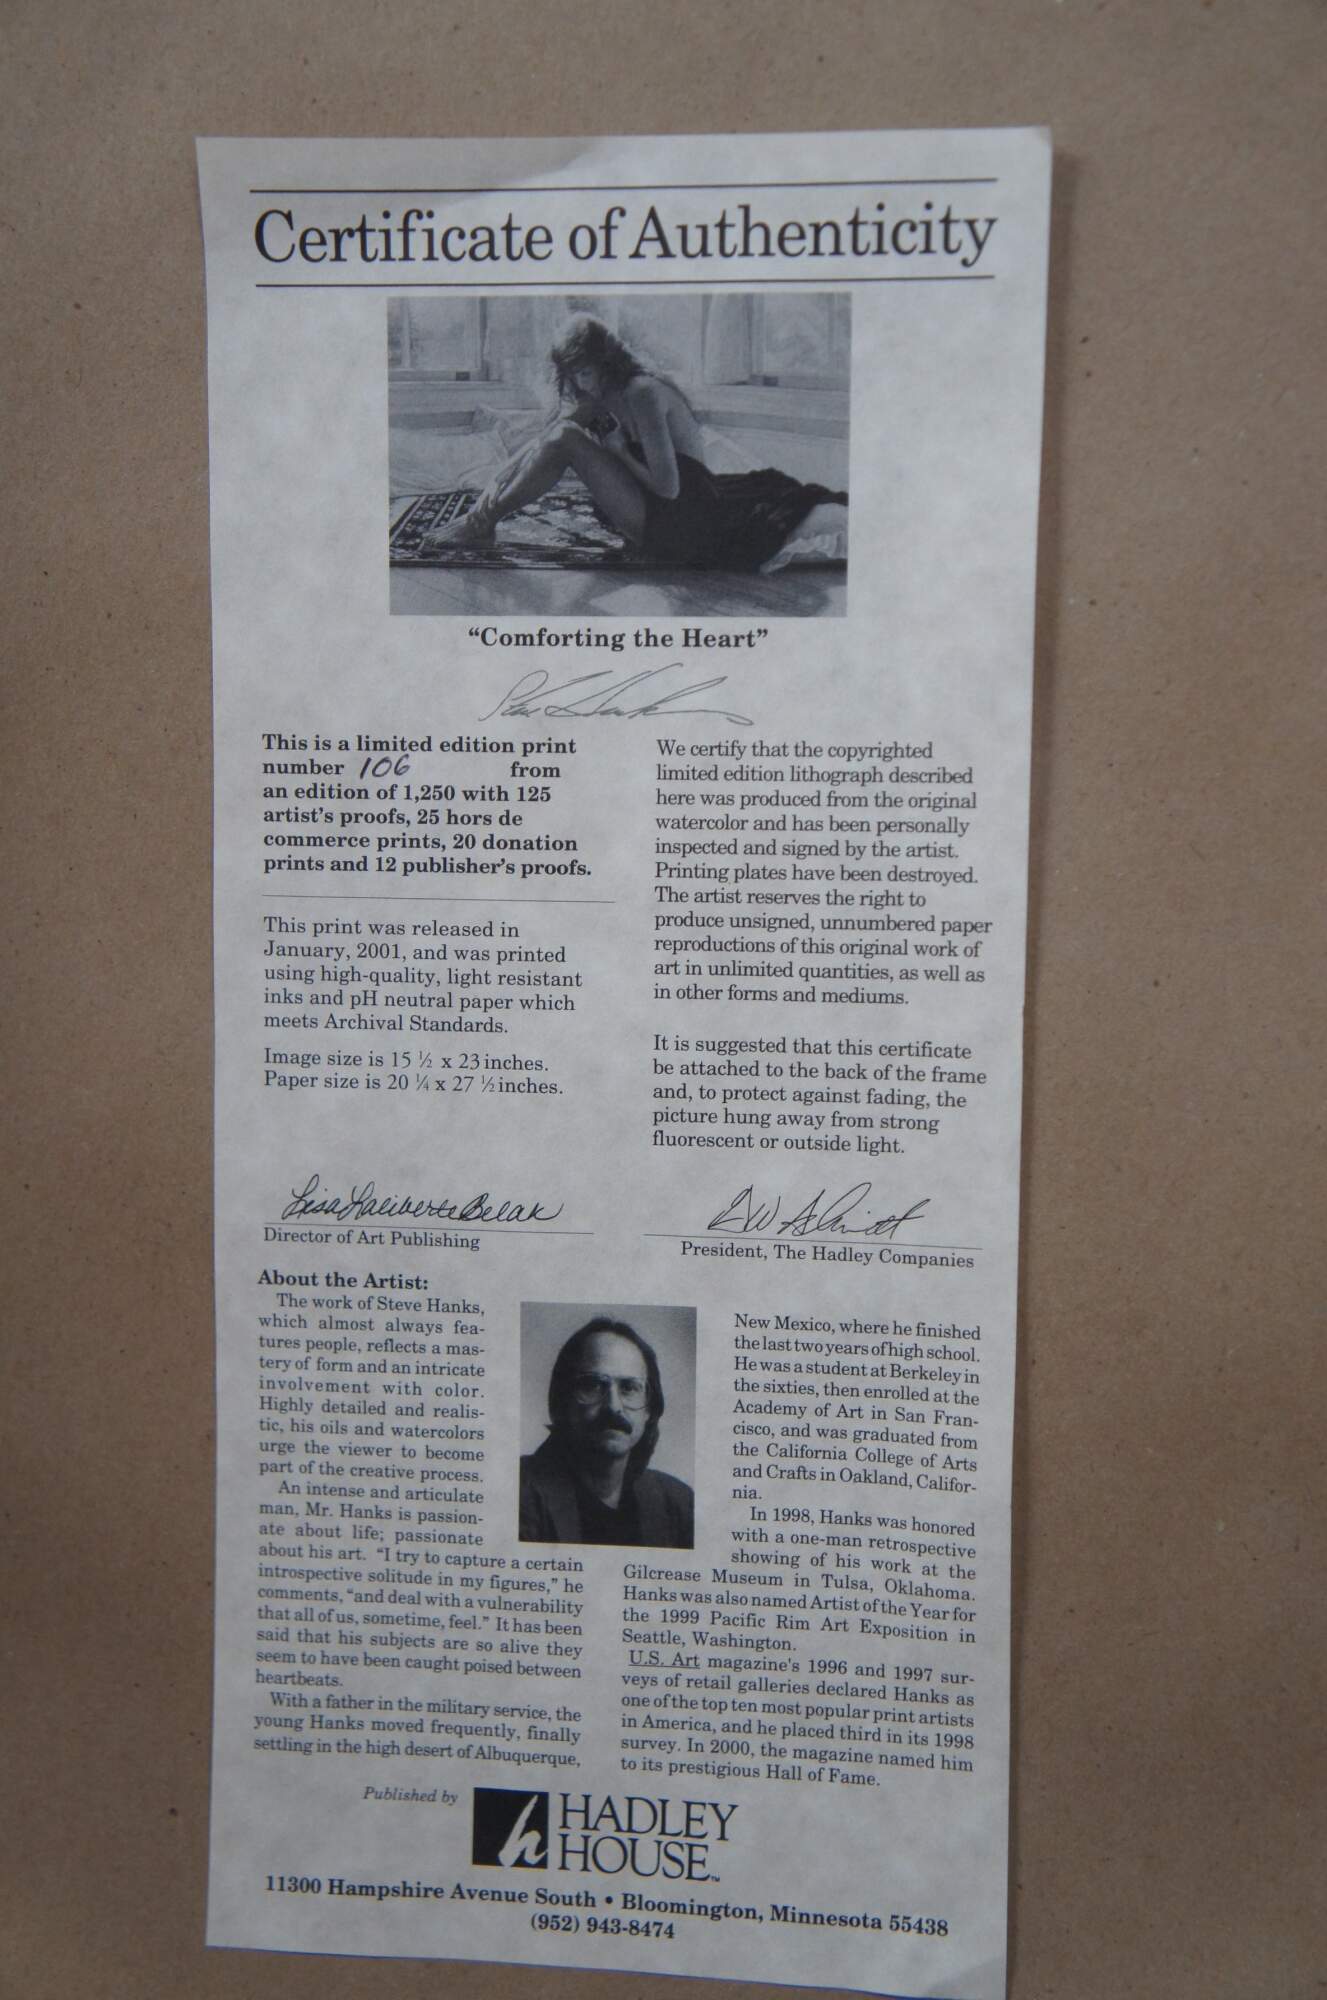 Certificate of Authenticity
“Comforting the Heart”
Steve Hanks
This is a limited edition print
number 106 from
an edition of 1,250 with 125
artist's proofs, 25 hors de
commerce prints, 20 donation
prints and 12 publisher's proofs.
This print was released in
January, 2001, and was printed
using high-quality, light resistant
inks and pH neutral paper which
meets Archival Standards.
Image size is 15 ½ x 23 inches.
Paper size is 20 ¼ x 27 ½ inches.
We certify that the copyrighted
limited edition lithograph described
here was produced from the original
watercolor and has been personally
inspected and signed by the artist.
Printing plates have been destroyed.
The artist reserves the right to
produce unsigned, unnumbered paper
reproductions of this original work of
art in unlimited quantities, as well as
in other forms and mediums.
It is suggested that this certificate
be attached to the back of the frame
and, to protect against fading, the
picture hung away from strong
fluorescent or outside light.
Lisa Laliberte Belak
Director of Art Publishing
President, The Hadley Companies
About the Artist:
The work of Steve Hanks,
which almost always fea-
tures people, reflects a mas-
tery of form and an intricate
involvement with color.
Highly detailed and realis-
tic, his oils and watercolors
urge the viewer to become
part of the creative process.
An intense and articulate
man, Mr. Hanks is passion-
ate about life; passionate
about his art. “I try to capture a certain
introspective solitude in my figures,” he
comments, “and deal with a vulnerability
that all of us, sometime, feel.” It has been
said that his subjects are so alive they
seem to have been caught poised between
heartbeats.
With a father in the military service, the
young Hanks moved frequently, finally
settling in the high desert of Albuquerque,
New Mexico, where he finished
the last two years of high school.
He was a student at Berkeley in
the sixties, then enrolled at the
Academy of Art in San Fran-
cisco, and was graduated from
the California College of Arts
and Crafts in Oakland, Califor-
nia.
In 1998, Hanks was honored
with a one-man retrospective
showing of his work at the
Gilcrease Museum in Tulsa, Oklahoma.
Hanks was also named Artist of the Year for
the 1999 Pacific Rim Art Exposition in
Seattle, Washington.
U.S. Art magazine's 1996 and 1997 sur-
veys of retail galleries declared Hanks as
one of the top ten most popular print artists
in America, and he placed third in its 1998
survey. In 2000, the magazine named him
to its prestigious Hall of Fame.
Published by
h HADLEY
HOUSE™
11300 Hampshire Avenue South • Bloomington, Minnesota 55438
(952) 943-8474